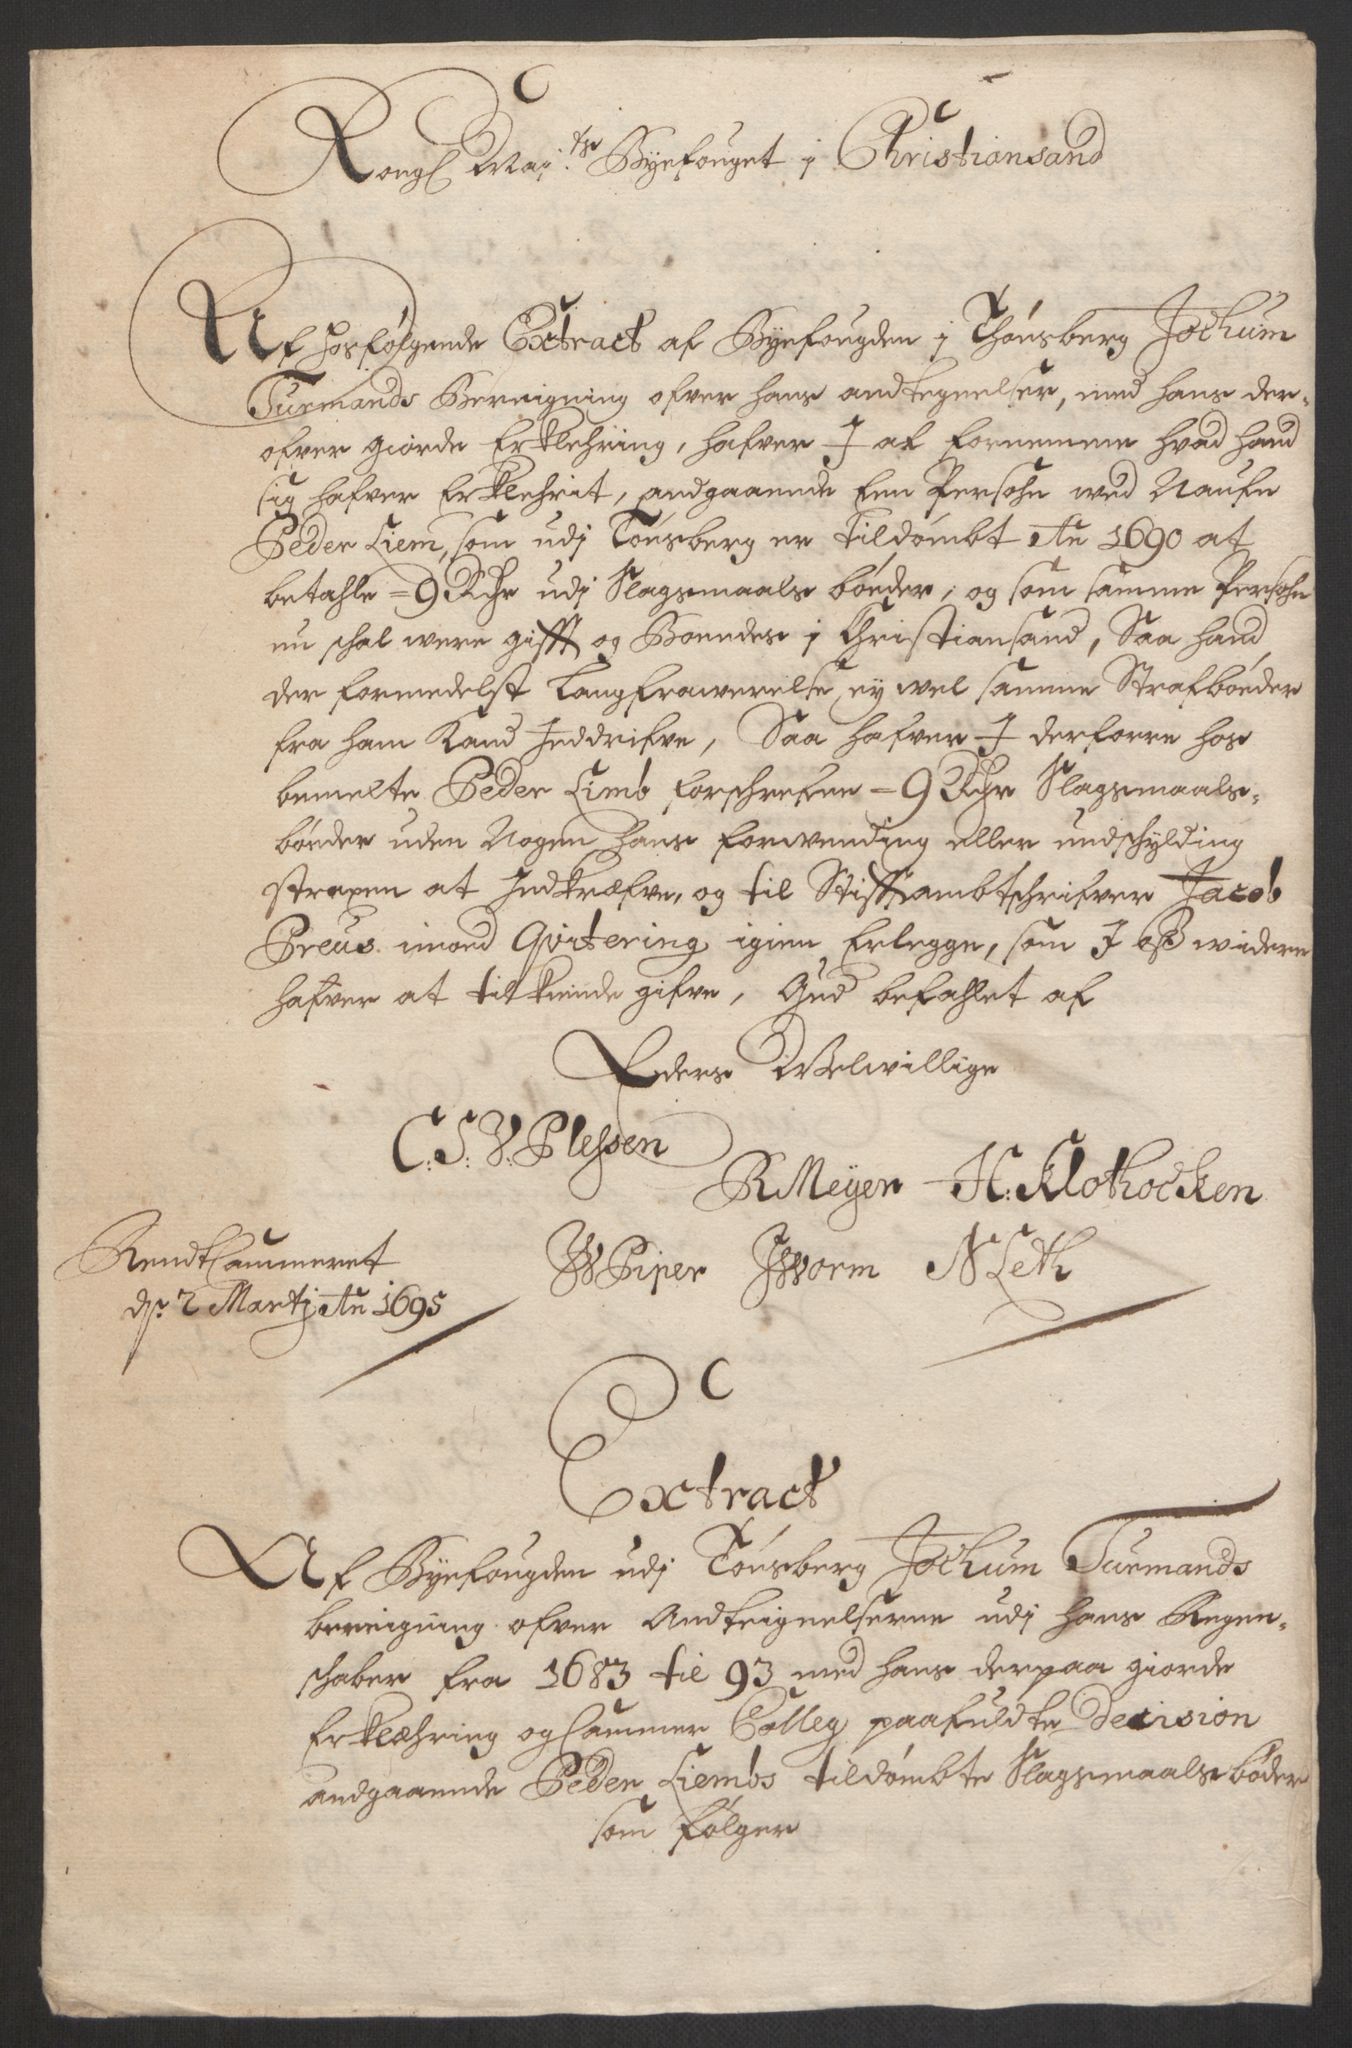 Kongl Maj:ts Byefouget i Christiansand
Af hosfølgende Extract af Byefougden i Thónsberg Jochum
Turmands Besvigning ofver hans andtegnelser, med hans der-
ofver giorde Erklehring, hafver I at fornemme hvad hand
sig hafver Erklehrit, andgaaende Een Persohn ved Naufn
Peder Liem, som udj Tónsberg er tildómbt Ao 1690 at
betahle = 9 Rdr udj Slagsmaals bóeder, og som samme Persohn
nu schal were gifft og Boendes i Christiansand, Saa hand
der formedelst Langfrawerelse ey wel samme Strafbóeder
fra ham Kand Inddrifve, Saa hafver I derforre hos
bemelte Peder Limb forschrefne = 9 Rdr Slagsmaals-
bóeder uden Nogen hans forwending eller undschylding
straxen at Indkræfve, og til Stifftambtschrifver Jacob
Preus imod Qvitering igien Erlegge, som I oss widere
hafver at tilkiende gifve, Gud befahlet af
Eders Welwillige
C: S: V: Plessen
R Meyer H: Klothocken
W Piper J Worm N Leth
RendtCammeret
ds: 2 Martj Ao 1695
Extract
Af Byefougden udj Tónsberg Jochum Turmands
besvigning ofver Andteignelserne udj hans Regen-
schaber fra 1683 til 93 med hans derpaa giorde
Erklæhring og Cammer Colleg paafuldte Decision
andgaaende Peder Liembs tildómbte Slagsmaals bóder
som fólger